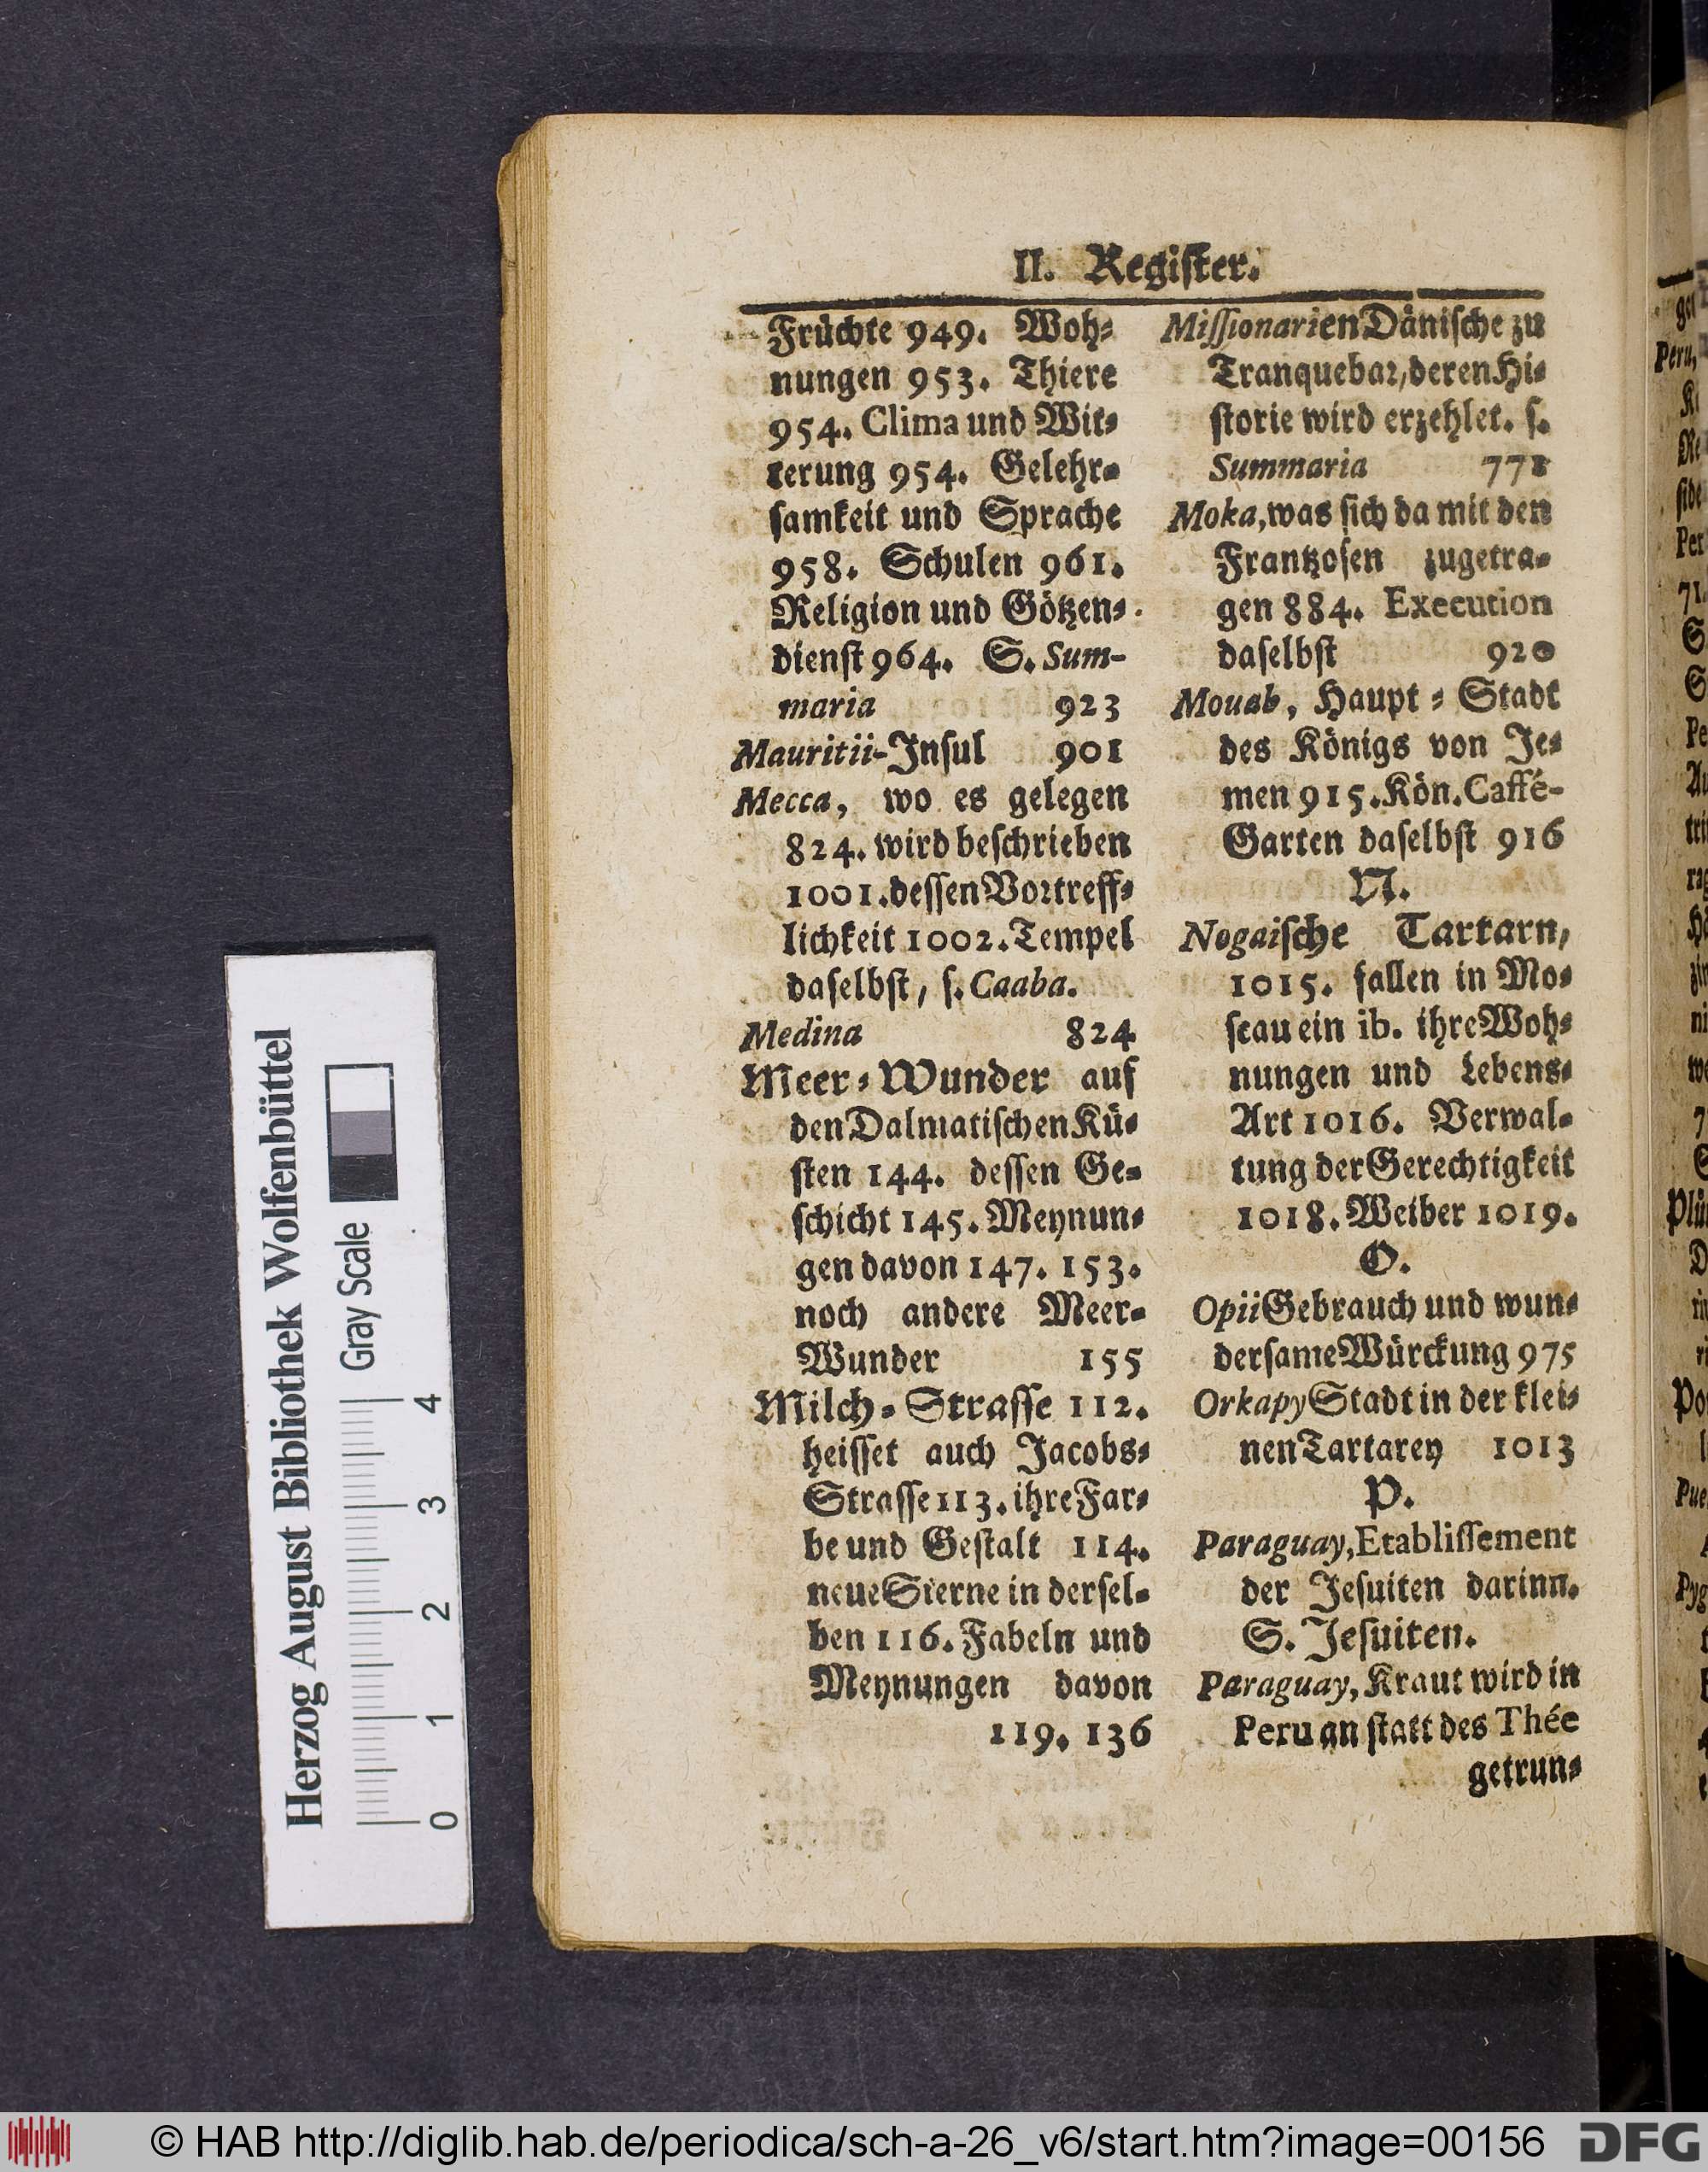 II. Register.
Früchte 949. Woh-
nungen 953. Thiere
954. Clima und Wit-
terung 954. Gelehr-
samkeit und Sprache
958. Schulen 961.
Religion und Götzen-
dienst 964. S. Sum-
maria 923
Mauritii-Insul 901
Mecca, wo es gelegen
824. wird beschrieben
1001. dessen Vortreff-
lichkeit 1002. Tempel
daselbst, s. Caaba.
Medina 824
Meer-Wunder auf
den Dalmatischen Kü-
sten 144. dessen Ge-
schicht 145. Meynun-
gen davon 147. 153.
noch andere Meer-
Wunder 155
Milch-Strasse 112.
heisset auch Jacobs-
Strasse 113. ihre Far-
be und Gestalt 114.
neue Sterne in dersel-
ben 116. Fabeln und
Meynungen davon
119. 136
Missionarien Dänische zu
Tranquebar, deren Hi-
storie wird erzehlet. s.
Summaria 771
Moka, was sich da mit den
Frantzosen zugetra-
gen 884. Execution
daselbst 920
Mouab, Haupt-Stadt
des Königs von Je-
men 915. Kön. Caffé-
Garten daselbst 916
N.
Nogaische Tartarn,
1015. fallen in Mo-
scau ein ib. ihre Woh-
nungen und Lebens-
Art 1016. Verwal-
tung der Gerechtigkeit
1018. Weiber 1019.
O.
Opii Gebrauch und wun-
dersame Würckung 975
Orkapy Stadt in der klei-
nen Tartarey 1013
P.
Paraguay, Etablissement
der Jesuiten darinn.
S. Jesuiten.
Paraguay, Kraut wird in
Peru an statt des Thée
getrun-
Herzog August Bibliothek Wolfenbüttel
Gray Scale
0 1 2 3 4
© HAB http://diglib.hab.de/periodica/sch-a-26_v6/start.htm?image=00156
DFG